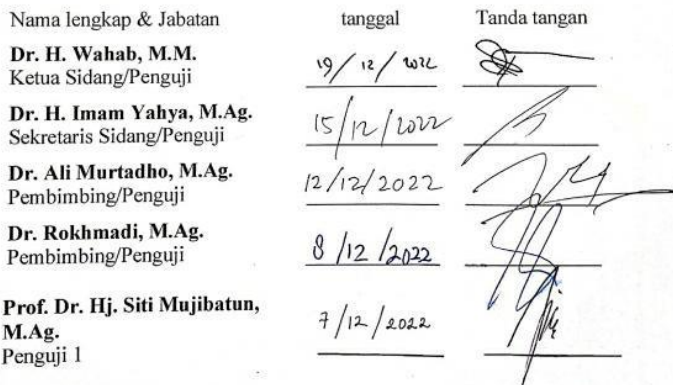 Nama lengkap & Jabatan tanggal Tanda tangan
Dr. H. Wahab, M.M.
Ketua Sidang/Penguji 19/12/2022
Dr. H. Imam Yahya, M.Ag.
Sekretaris Sidang/Penguji 15/12/2022
Dr. Ali Murtadho, M.Ag.
Pembimbing/Penguji 12/12/2022
Dr. Rokhmadi, M.Ag.
Pembimbing/Penguji 8/12/2022
Prof. Dr. Hj. Siti Mujibatun,
M.Ag. 7/12/2022
Penguji 1